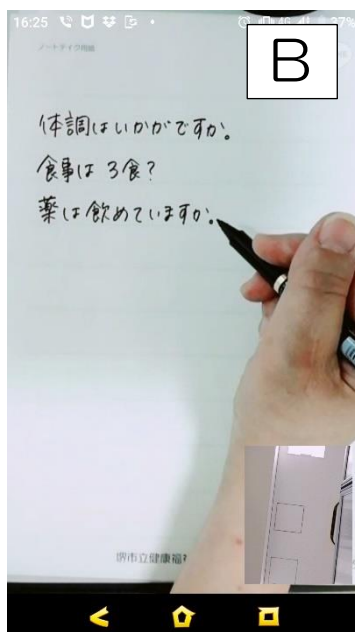 16:25 4G 37%
B
ノートテイク用紙
体調はいかがですか。
食事は 3食?
薬は飲めていますか。
堺市立健康福